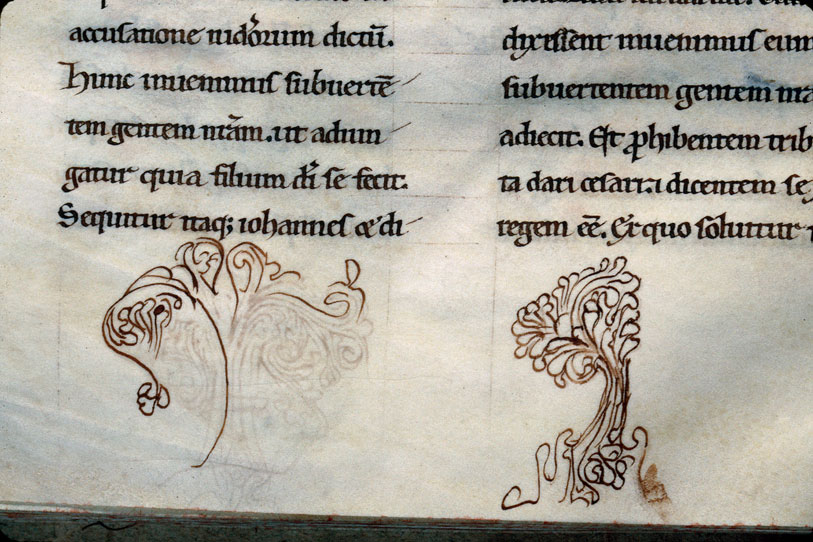 accusatione iudeorum dictū.
Hunc inuenimus subuertē
tem gentem nr̄am. ut adiun
gatur quia filium dī se fecit.
Sequitur itaq; iohannes &
dixissent inuenimus eum
subuertentem gentem
adiecit. Et ꝓhibentem
ta dari cesari: dicentem
regem eē. Ex quo soluitur